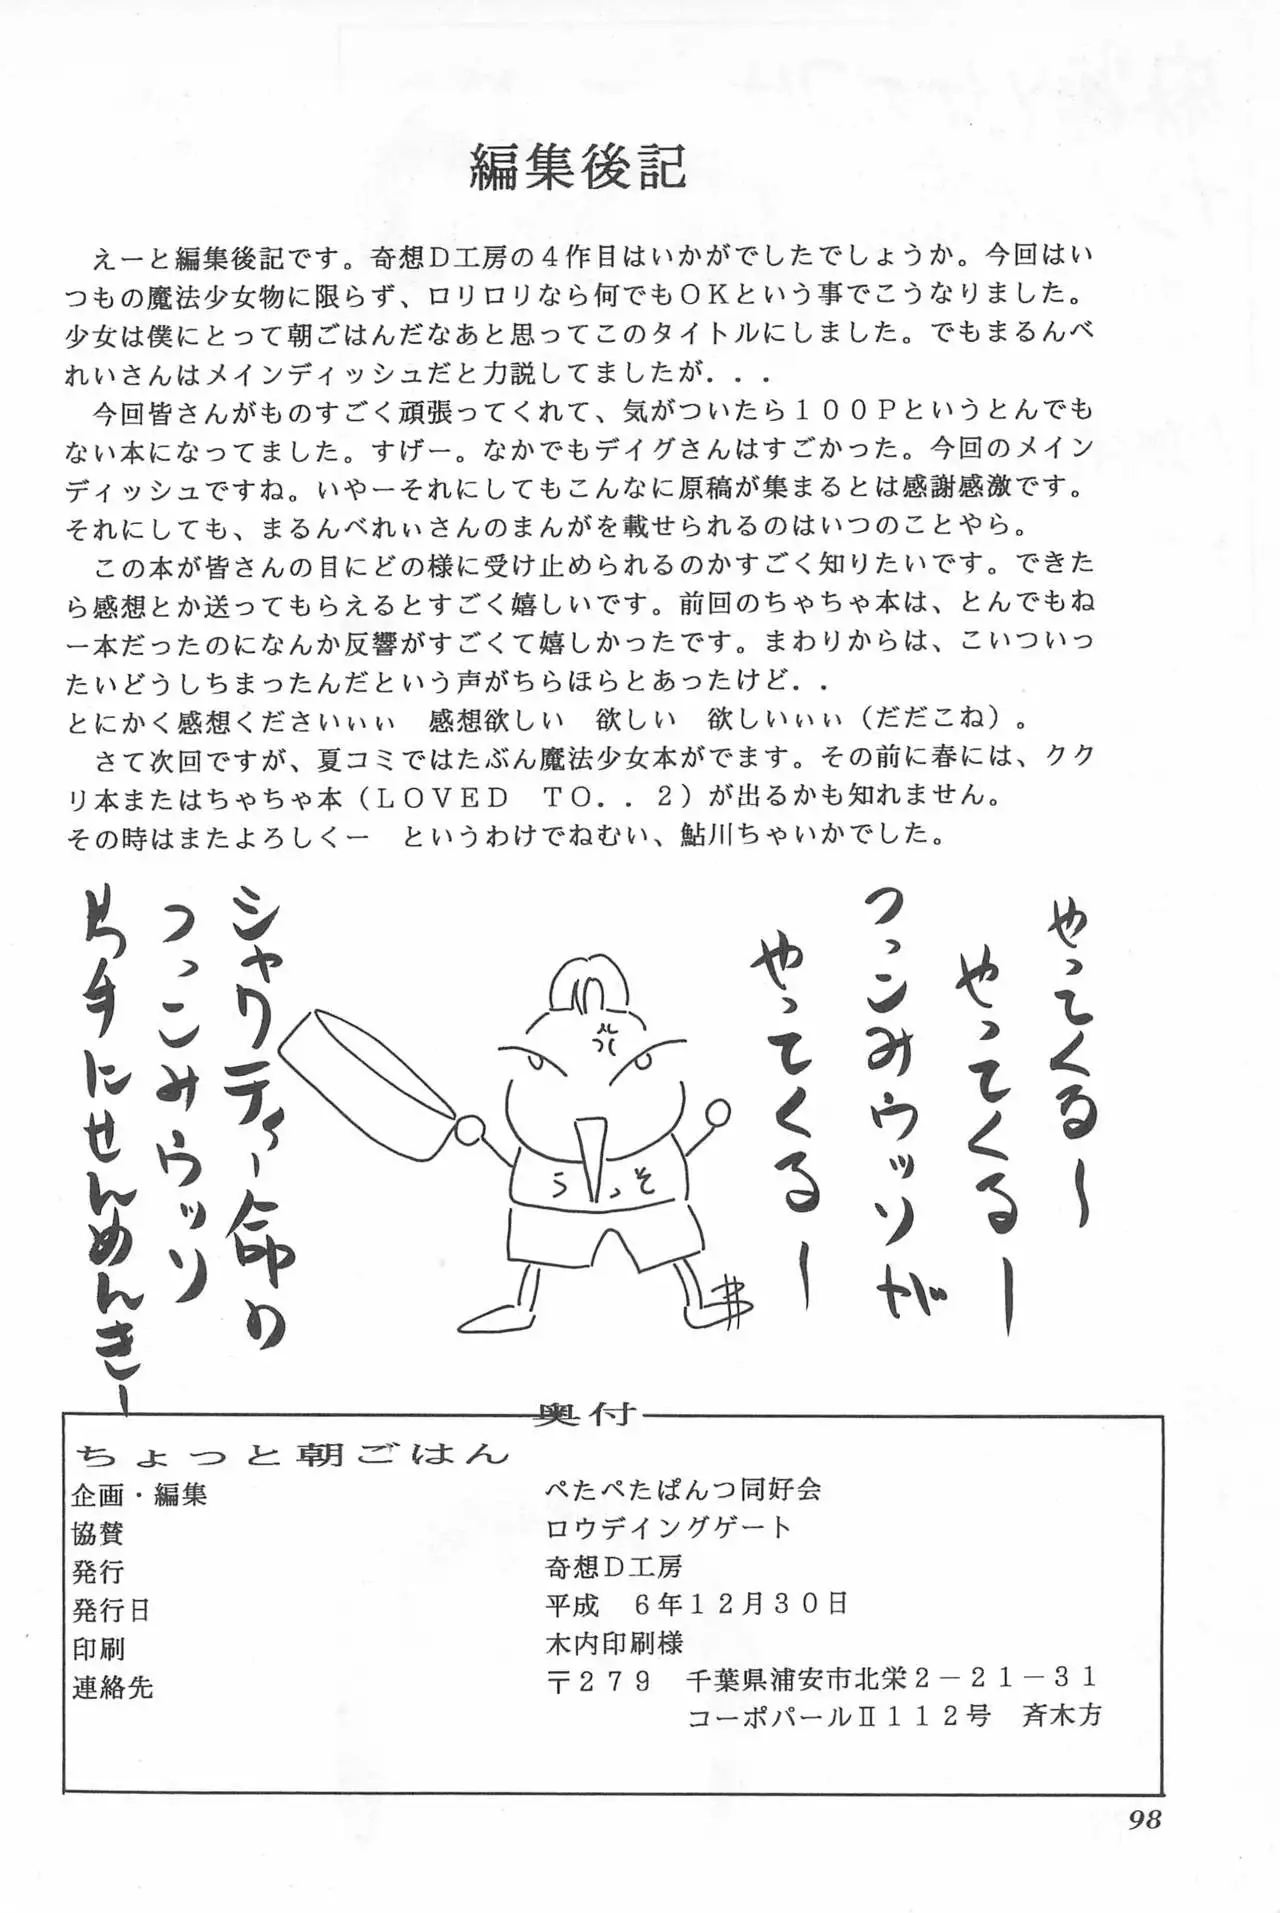 編集後記
えーと編集後記です。奇想D工房の4作目はいかがでしたでしょうか。今回はい
つもの魔法少女物に限らず、ロリロリなら何でもOKという事でこうなりました。
少女は僕にとって朝ごはんだなあと思ってこのタイトルにしました。でもまるんべ
れいさんはメインディッシュだと力説してましたが...
今回皆さんがものすごく頑張ってくれて、気がついたら100Pというとんでも
ない本になってました。すげー。なかでもデイグさんはすごかった。今回のメイン
ディッシュですね。いやーそれにしてもこんなに原稿が集まるとは感謝感激です。
それにしても、まるんべれぃさんのまんがを載せられるのはいつのことやら。
この本が皆さんの目にどの様に受け止められるのかすごく知りたいです。できた
ら感想とか送ってもらえるとすごく嬉しいです。前回のちゃちゃ本は、とんでもね
ー本だったのになんか反響がすごくて嬉しかったです。まわりからは、こいついっ
たいどうしちまったんだという声がちらほらとあったけど..
とにかく感想くださいぃぃ 感想欲しい 欲しい 欲しいぃぃ(だだこね)。
さて次回ですが、夏コミではたぶん魔法少女本がでます。その前に春には、クク
リ本またはちゃちゃ本(LOVED TO..2)が出るかも知れません。
その時はまたよろしくー というわけでねむい、鮎川ちゃいかでした。
やってくる〜
やってくるー
つっこみウッソが
やってくるー
うっそ
シャクティー命の
つっこみウッソ
片手にせんめんきー
奥付
ちょっと朝ごはん
企画・編集 ぺたぺたぱんつ同好会
協賛 ロウデイングゲート
発行 奇想D工房
発行日 平成 6年12月30日
印刷 木内印刷様
連絡先 〒279 千葉県浦安市北栄2-21-31
コーポパールⅡ112号 斉木方
98